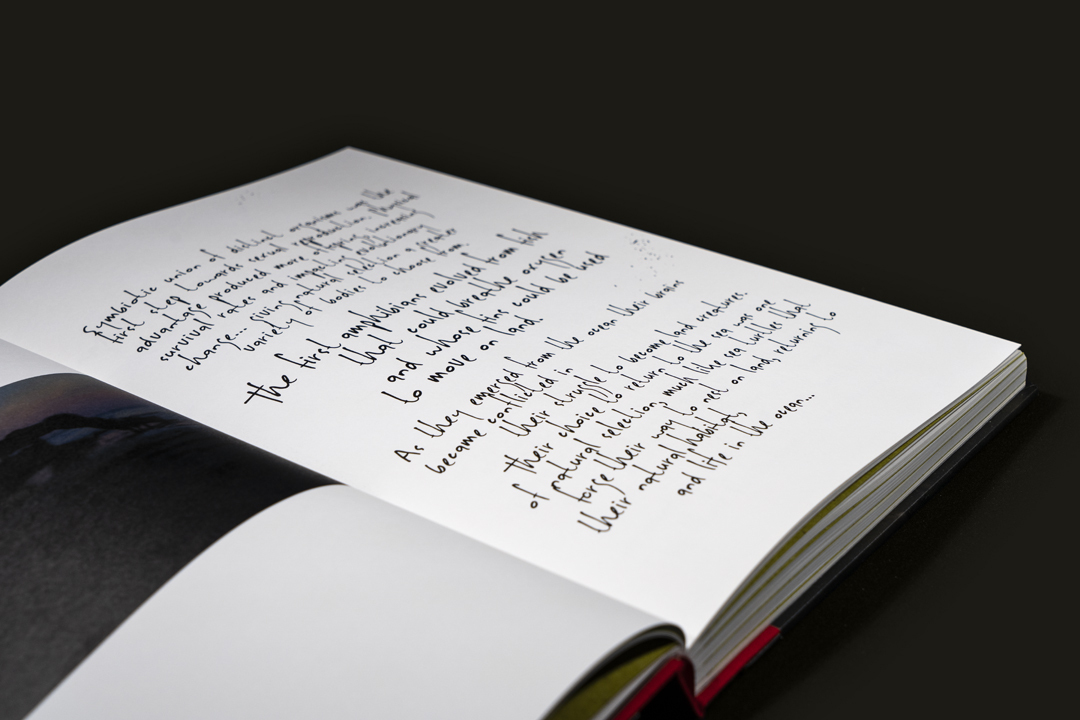 Symbiotic union of distinct organisms was the
first step towards sexual reproduction. Physical
advantage produced more offspring increasing
survival rates and impacting evolutionary
change... giving natural selection a greater
variety of bodies to choose from.
The first amphibians evolved from fish
that could breathe oxygen
and whose fins could be used
to move on land.
As they emerged from the ocean their brains
became conflicted in
their struggle to become land creatures.
their choice to return to the sea was one
of natural selection, much like sea turtles that
forge their way to nest on land, returning to
their natural habitats,
and life in the ocean...